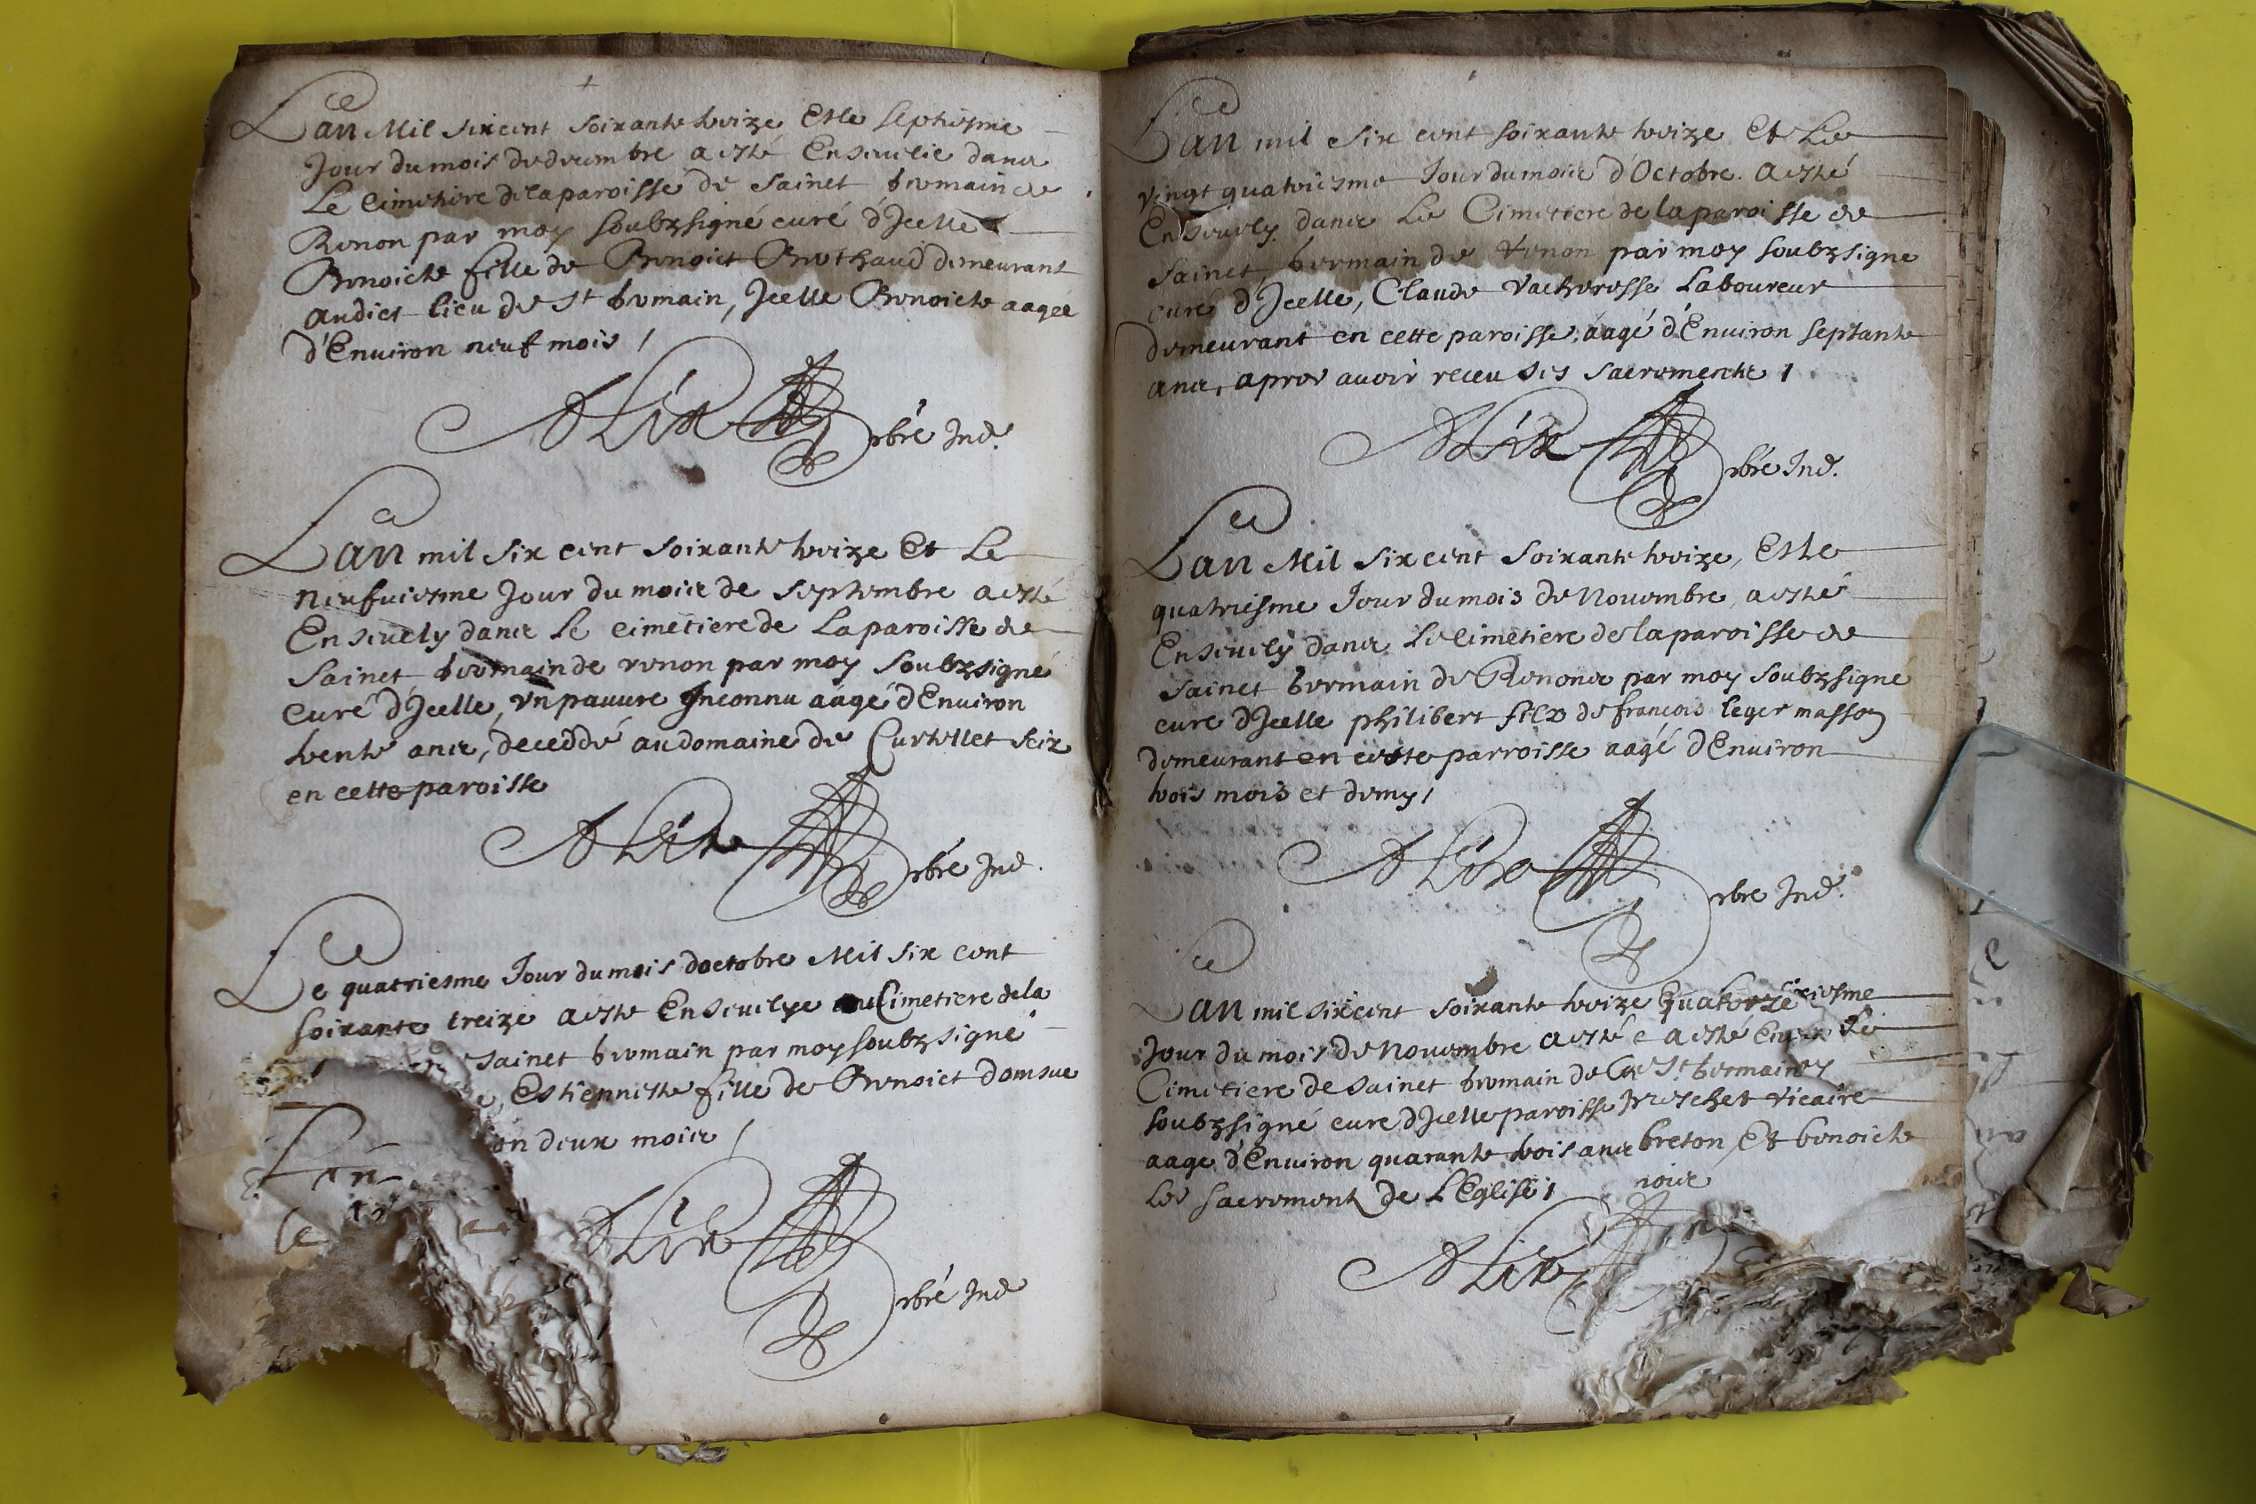 L'an Mil six cent soixante treize Et le septiesme
Jour du mois de decembre a esté Ensevelie dans
Le Cimetiere de la paroisse de Sainct Germain de
Renon par moy soubzsigné curé d'Icelle
Benoicte fille de Benoict Brothaud demeurant
audict lieu de St Germain, Icelle Benoicte aagée
d'Environ neuf mois /
Alix pbre Ind.
L'an mil six cent soixante treize Et Le
neufviesme Jour du mois de septembre a esté
Ensevely dans Le cimetiere de La paroisse de
Sainct Germain de renon par moy Soubzsigné
Curé d'Icelle, Vn pauvre Inconnu aagé d'Environ
trente ans, decedé au domaine de Curtellet seiz
en cette paroisse
Alix pbre Ind.
Le quatriesme Jour du mois d'octobre Mil six cent
soixante treize a esté Ensevelye au Cimetiere de la
Sainct Germain par moy soubzsigné
Estiennette fille de Benoict
on deux mois /
Alix pbré Ind
L'an mil six cent soixante treize Et Le
vingt quatriesme Jour du mois d'Octobre a esté
Ensevely dans Le Cimetiere de la paroisse de
Sainct Germain de renon par moy soubzsigne
curé d'Icelle, Claude Vacheresse Laboureur
demeurant en cette paroisse, aagé d'Environ septante
ans, apres avoir receu ses sacrements /
Alix pbré Ind.
L'an Mil six cent soixante treize, Et le
quatriesme Jour du mois de Novembre, a esté
Ensevely dans Le cimetiere de la paroisse de
Sainct Germain de Renons par moy soubzsigne
curé d'Icelle philibert filz de françois leger masson
demeurant en ceste parroisse aagé d'Environ
trois mois et demy /
Alix pbre Ind.
L'an mil six cent soixante treize quatorze riesme
Jour du mois de Novembre a esté e a esté
Cimetiere de Sainct Germain de St Germain
soubzsigné curé d'Icelle paroisse vicaire
aage d'Environ quarante trois ans breton Et benoicte
Les Sacrement de L'Eglise /
Alix